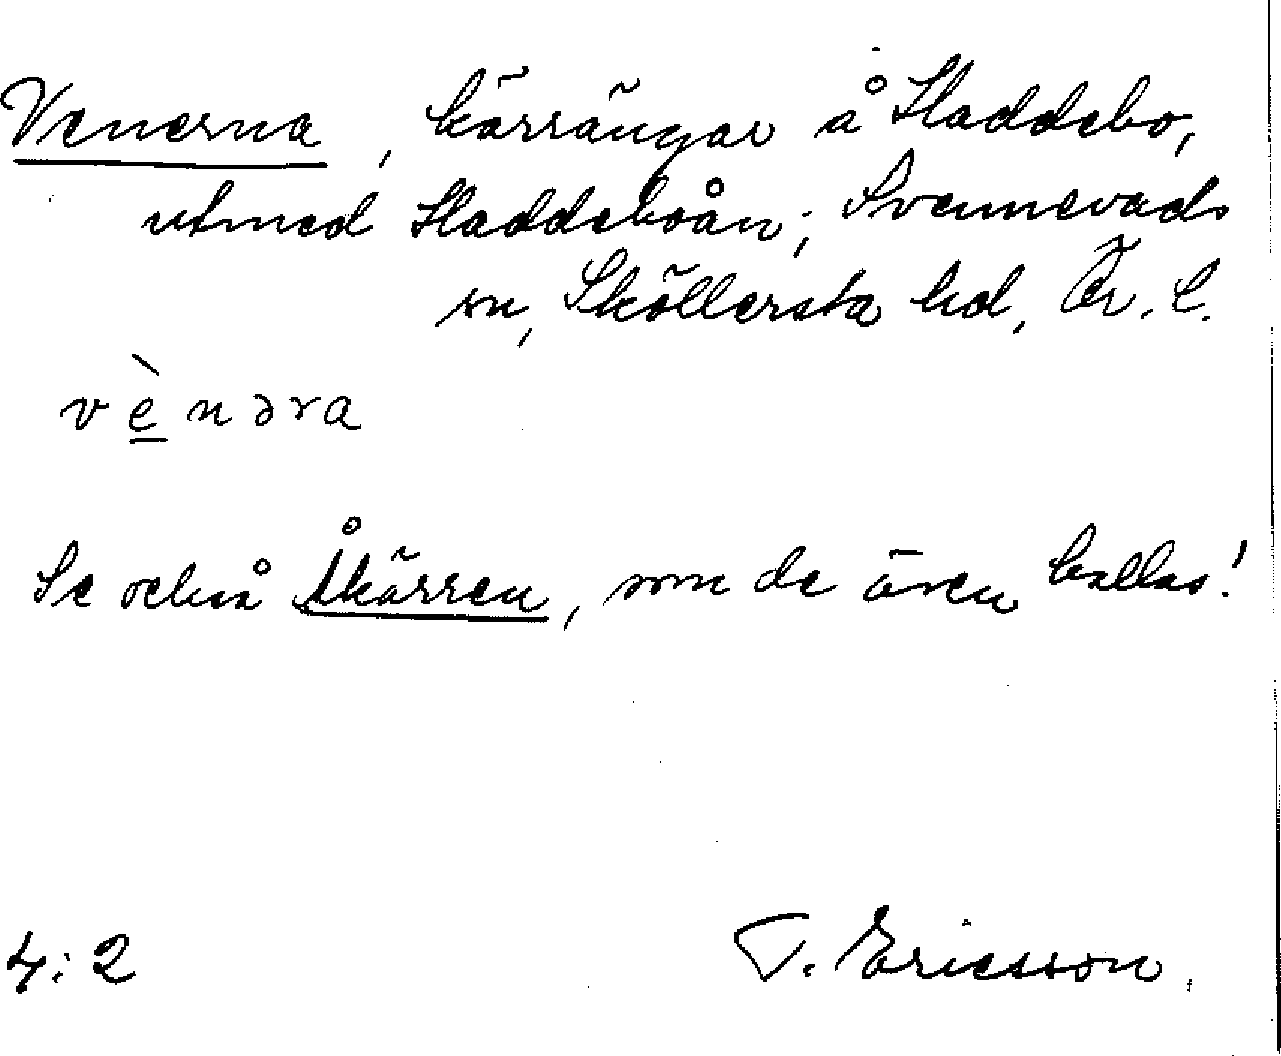 Venerna, kärrängar å Haddebo,
utmed Haddeboån; Svennevads
sn, Sköllersta hd, Ör. l.
vènəra
Se också Åkärren, som de även kallas!
4:2 T. Ericsson.